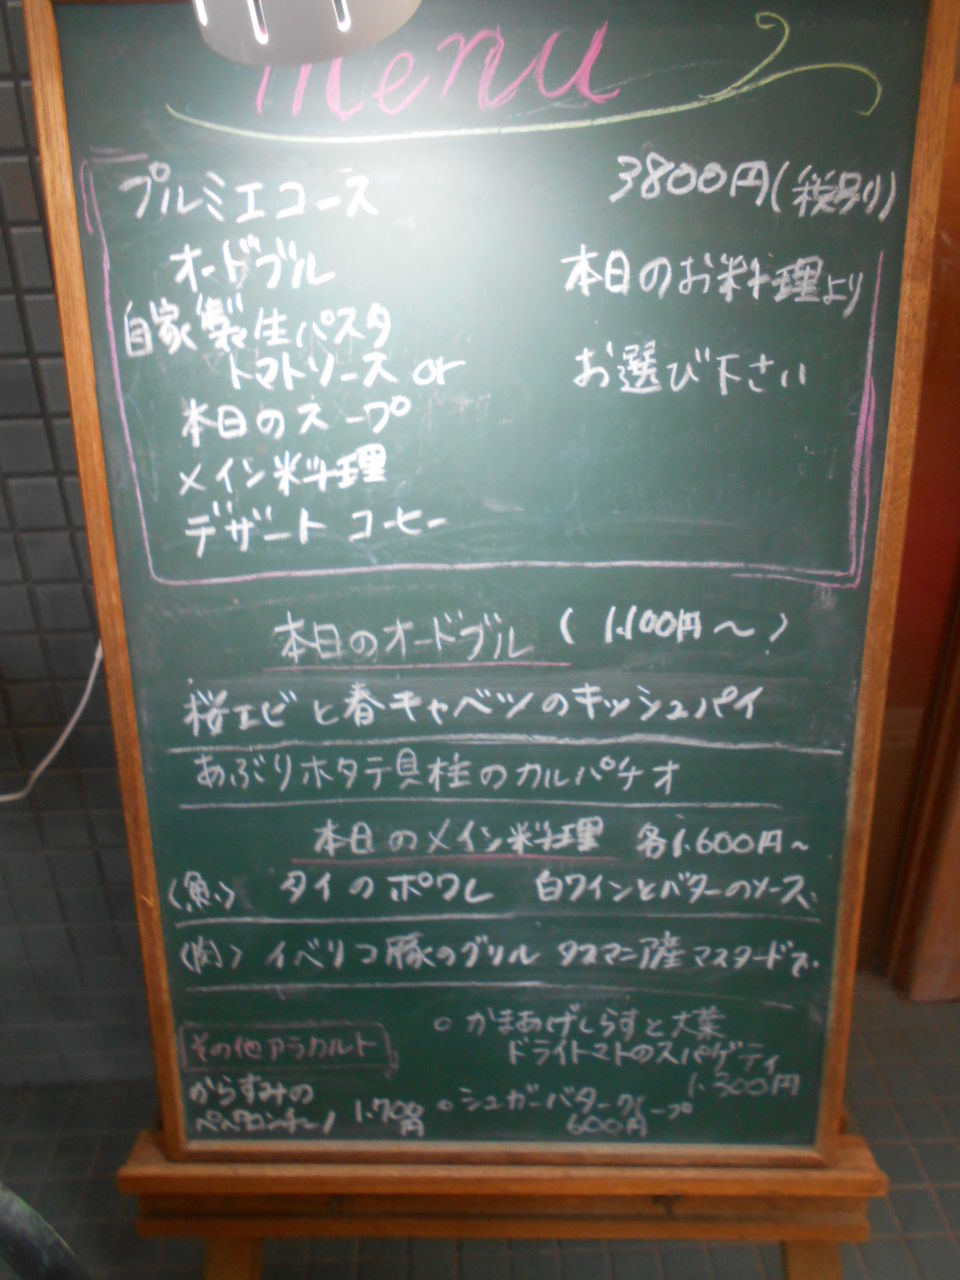 Menu
プルミエコース 3800円(税別)
オードブル 本日のお料理より
自家製生パスタ
トマトソース or お選び下さい
本日のスープ
メイン料理
デザート コーヒー
本日のオードブル (1.100円〜)
桜エビと春キャベツのキッシュパイ
あぶりホタテ貝柱のカルパチオ
本日のメイン料理 各1.600円〜
(魚) タイのポワレ 白ワインとバターのソース
(肉) イベリコ豚のグリル タスマニア産マスタードで
その他アラカルト
からすみの
ペペロンチーノ 1.700円
○ かまあげしらすと大葉
ドライトマトのスパゲティ
1.300円
○ シュガーバタークレープ
600円